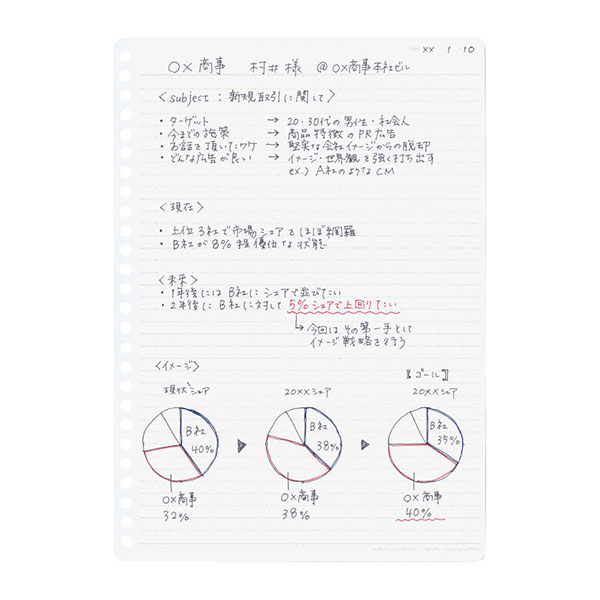 XX 1 10
○×商事 村井様 @○×商事本社ビル
〈subject：新規取引に関して〉
・ターゲット → 20・30代の男性・社会人
・今までの施策 → 商品特徴のPR広告
・お話を頂いたワケ → 堅実な会社イメージからの脱却
・どんな広告が良い → イメージ・世界観を強く打ち出す
ex.) A社のようなCM
〈現在〉
・上位3社で市場シェアをほぼ網羅
・B社が8%程優位な状態
〈未来〉
・1年後にはB社にシェアで並びたい
・2年後にB社に対して5%シェアで上回りたい
今回はその第一手として
イメージ戦略を行う
〈イメージ〉
【ゴール】
現状シェア 20××シェア 20××シェア
B社 40% B社 38% B社 35%
○×商事 ○×商事 ○×商事
32% 38% 40%